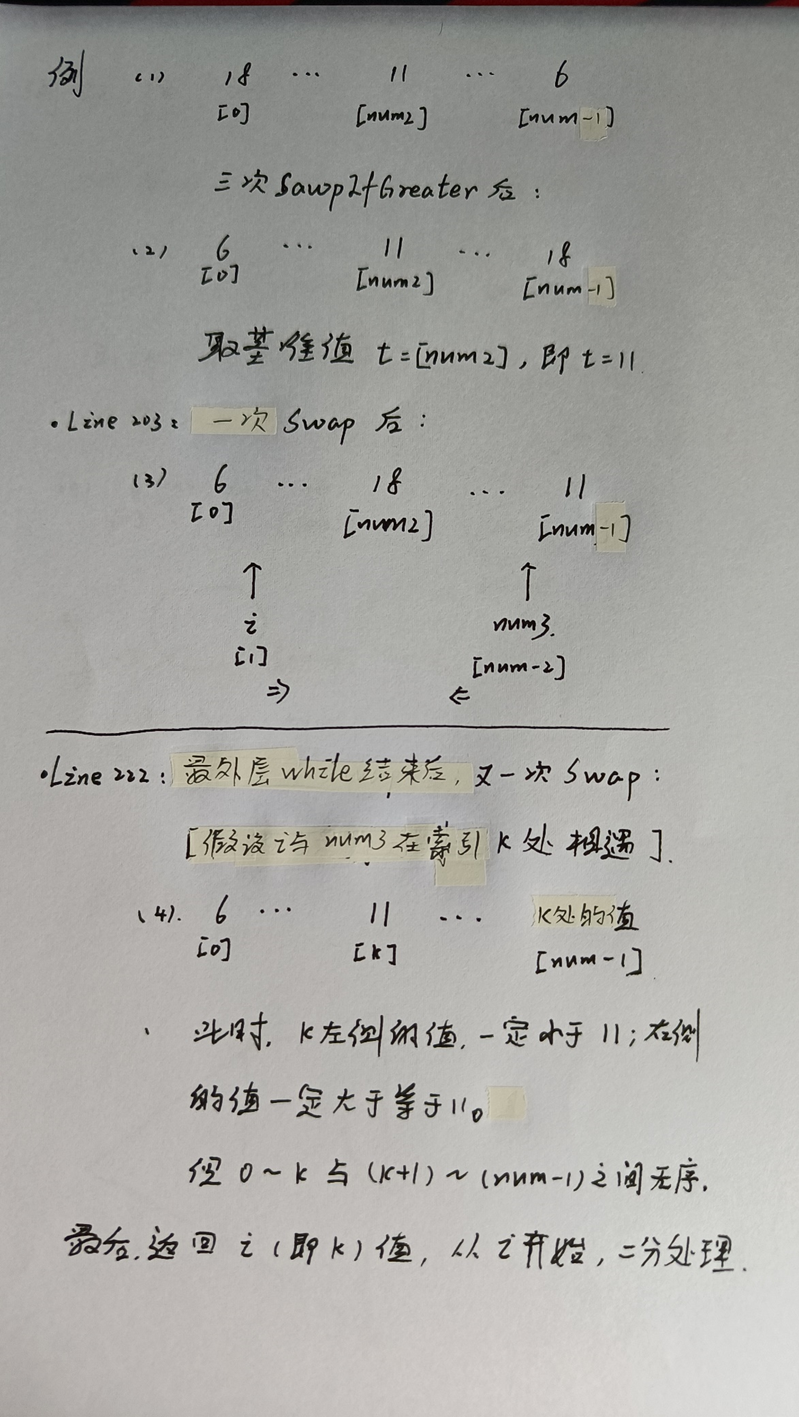 例 (1) 18 ... 11 ... 6
[0] [num2] [num-1]
三次 SawpIfGreater 后:
(2) 6 ... 11 ... 18
[0] [num2] [num-1]
取基准值 t=[num2], 即 t=11.
·Line 203: 一次 Swap 后:
(3) 6 ... 18 ... 11
[0] [num2] [num-1]
↑ ↑
i num3.
[1] [num-2]
⇒ ⇐
·Line 222: 最外层while结束后, 又一次 Swap:
[假设i与 num3 在索引 K 处 相遇].
(4). 6 ... 11 ... K处的值
[0] [K] [num-1]
此时, K左侧的值, 一定小于 11; 右侧
的值一定大于等于11。
但 0~K 与 (K+1)~(num-1)之间无序.
最后, 返回 i (即 K) 值, 从 i 开始, 二分处理.